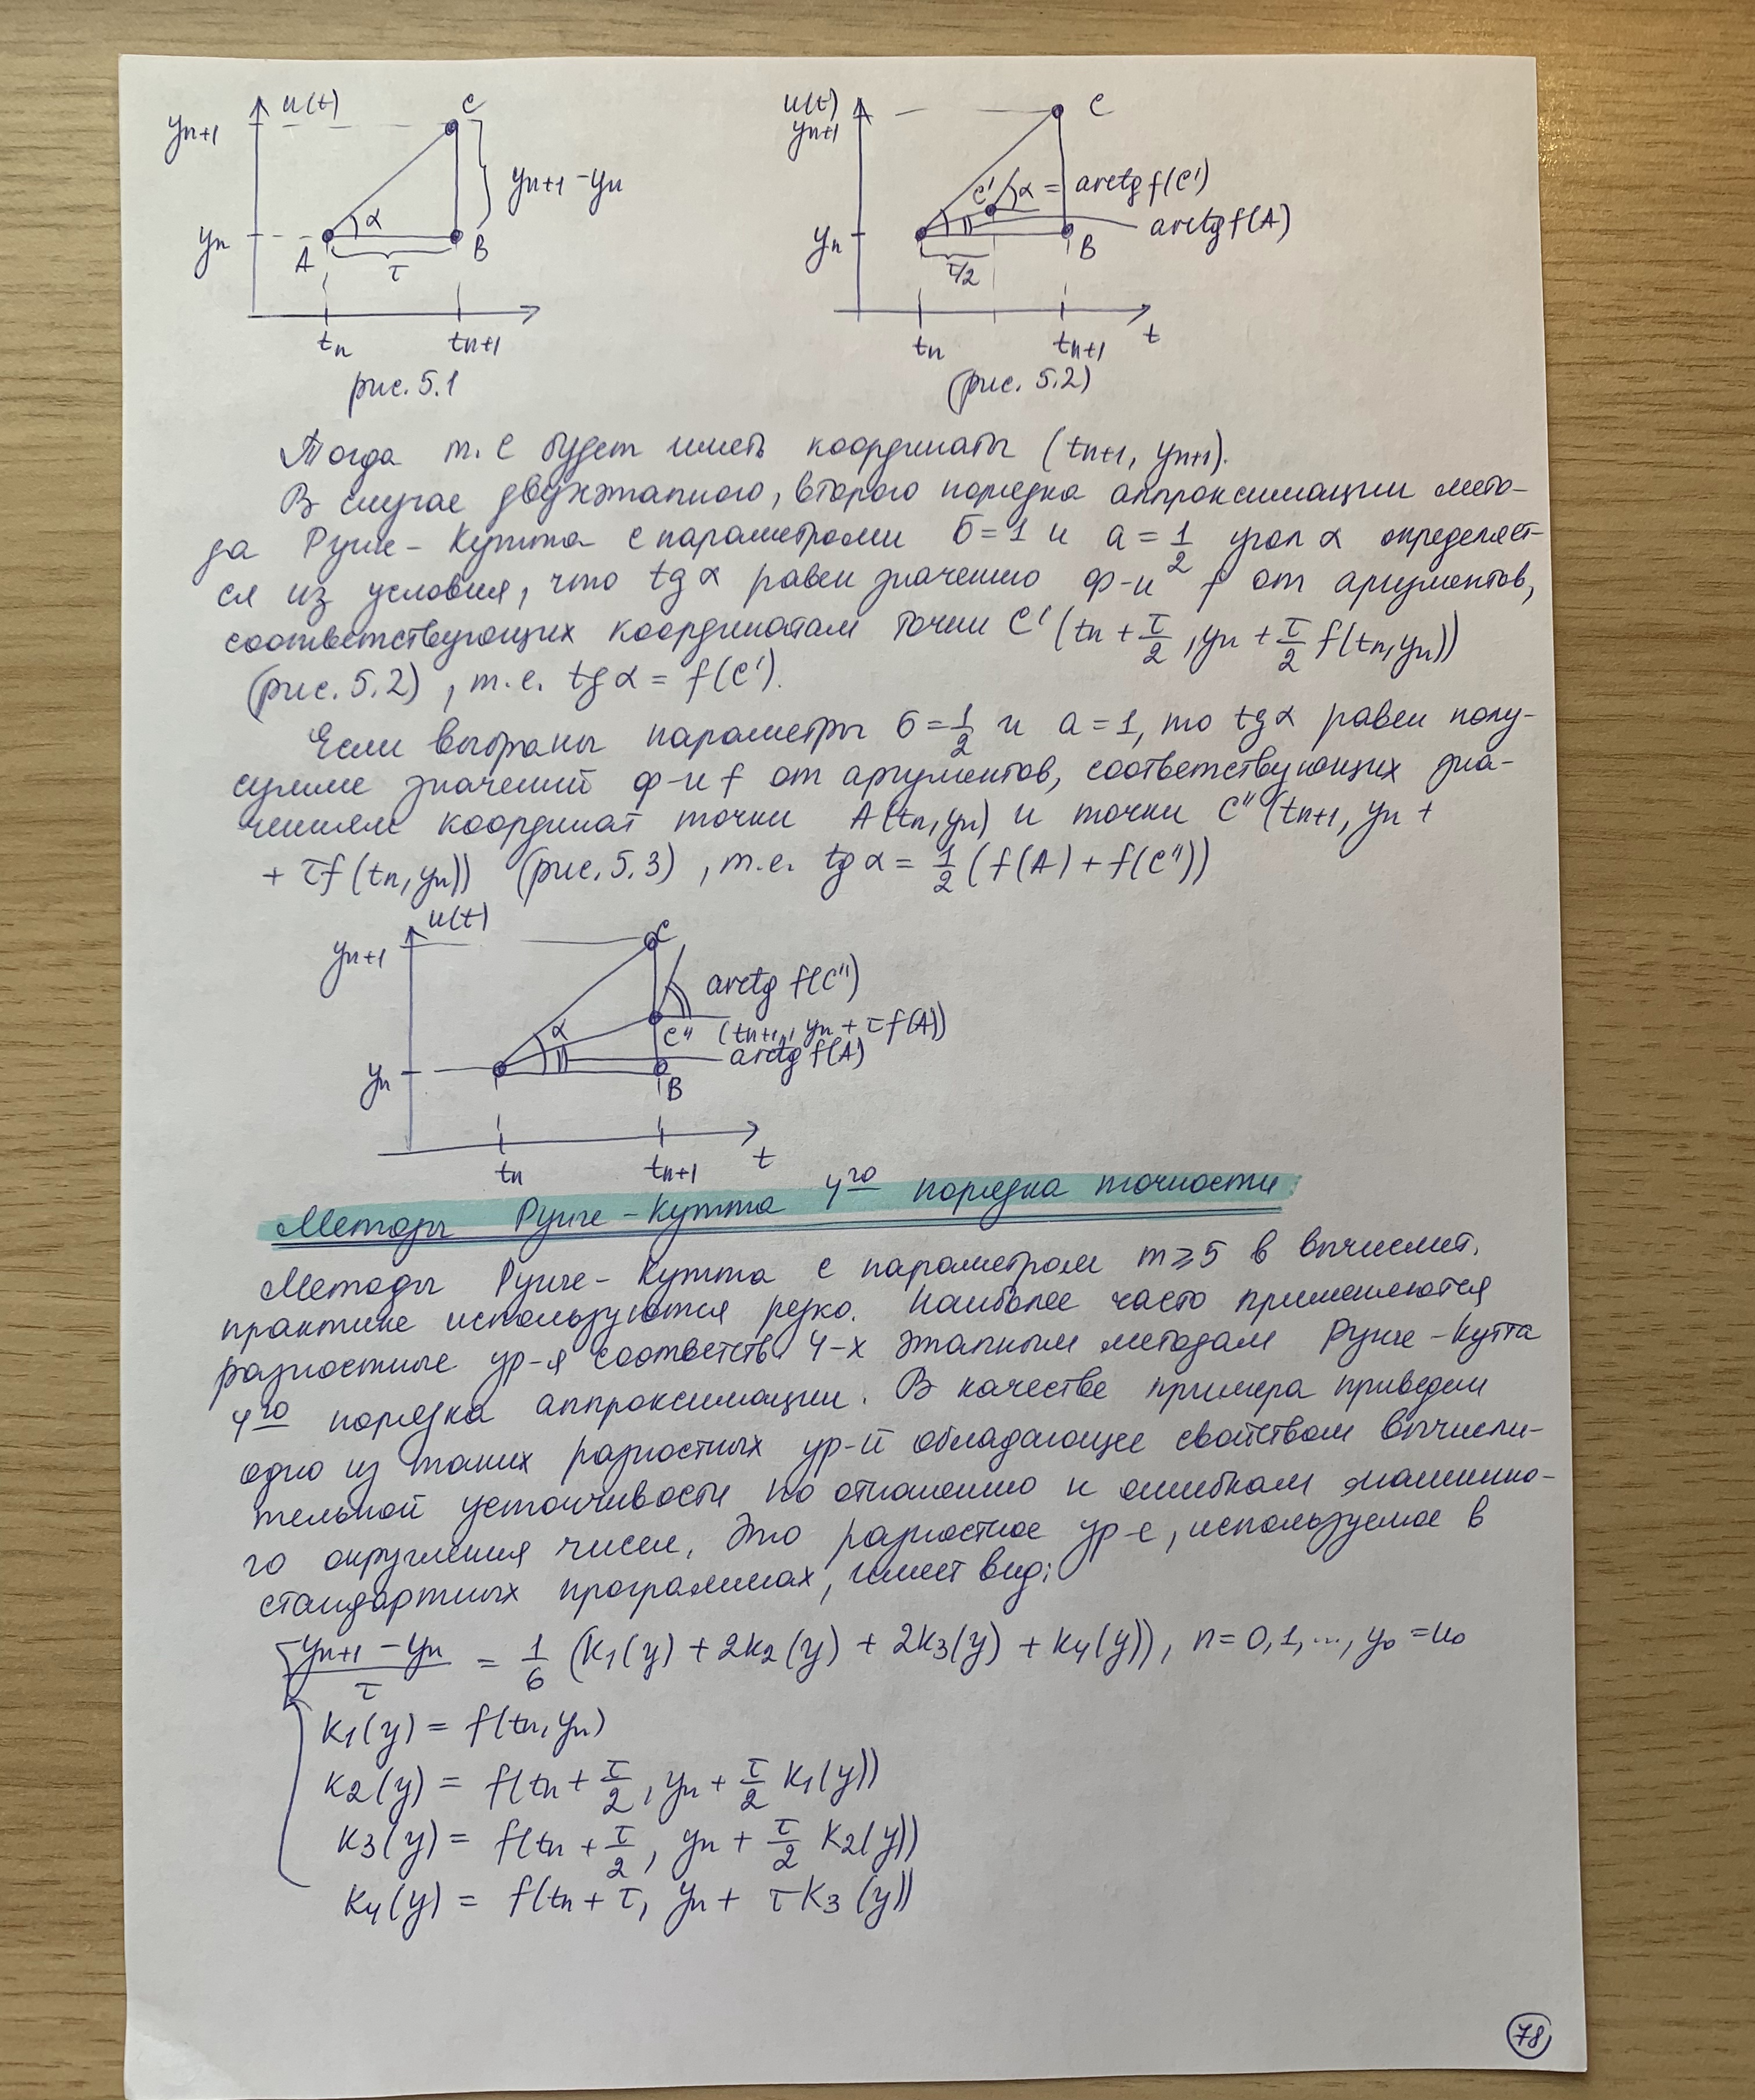 u(t)
yn+1
C
yn+1 - yn
α
yn
A
τ
B
tn
tn+1
рис. 5.1
u(t)
yn+1
C
C' α = arctg f(C')
arctg f(A)
yn
τ/2
B
tn
tn+1
t
(рис. 5.2)
Тогда т. C будет иметь координаты (tn+1, yn+1).
В случае двухэтапного, второго порядка аппроксимации мето-
да Рунге-Кутта с параметрами б=1 и a=1/2 угол α определяет-
ся из условия, что tg α равен значению ф-и f от аргументов,
соответствующих координатам точки C' (tn + τ/2, yn + τ/2 f(tn, yn))
(рис. 5.2), т.е. tg α = f(C').
Если выбраны параметры б=1/2 и a=1, то tg α равен полу-
сумме значений ф-и f от аргументов, соответствующих зна-
чениям координат точки A(tn, yn) и точки C'' (tn+1, yn +
+ τf(tn, yn)) (рис. 5.3), т.е. tg α = 1/2 (f(A) + f(C''))
u(t)
yn+1
C
arctg f(C'')
α
C'' (tn+1, yn + τf(A))
arctg f(A)
yn
B
tn
tn+1
t
Методы Рунге-Кутта 4го порядка точности
Методы Рунге-Кутта с параметром m⩾5 в вычислит.
практике используются редко. Наиболее часто применяются
разностные ур-я соответств. 4-х этапным методам Рунге-Кутта
4го порядка аппроксимации. В качестве примера приведем
одно из таких разностных ур-й обладающее свойством вычисли-
тельной устойчивости по отношению к ошибкам машинно-
го округления чисел. Это разностное ур-е, используемое в
стандартных программах, имеет вид:
(yn+1 - yn)/τ = 1/6 (k1(y) + 2k2(y) + 2k3(y) + k4(y)), n=0,1,..., y0=u0
k1(y) = f(tn, yn)
k2(y) = f(tn + τ/2, yn + τ/2 k1(y))
k3(y) = f(tn + τ/2, yn + τ/2 k2(y))
k4(y) = f(tn + τ, yn + τk3(y))
78